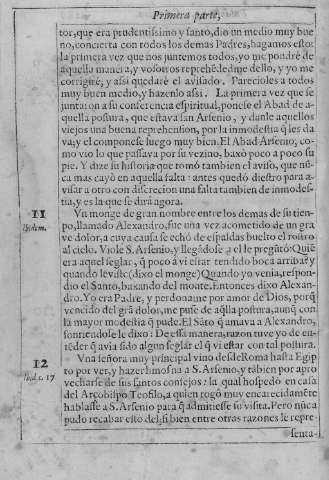 Primera parte,
tor, que era prudentissimo y santo, dio un medio muy bue
no, concierta con todos los demas Padres, hagamos esto:
la primera vez que nos juntemos todos, yo me pondrè de
aquella manera, y vosotros reprehẽdedme dello, y yo me
corrigirè, y assi quedarè el avisado. Parecioles a todos
muy buen medio, y hazenlo assi. La primera vez que se
juntaron a su conferencia espiritual, ponese el Abad de a-
quella postura, que estava san Arsenio, y danle aquellos
viejos una buena reprehension, por la inmodestia q̃ les da
va, y el componese luego muy bien. El Abad Arsenio, co-
mo vio lo que passava por su vezino, baxò poco a poco su
pie. Y dize su historia que tomò tambien el aviso, que nũ-
ca mas cayò en aquella falta: antes quedò diestro para a-
visar a otro con discrecion una falta tambien de inmodes-
tia, y es la que se dirà agora.
11 Un monge de gran nombre entre los demas de su tien-
Ibidem. po, llamado Alexandro, fue una vez acometido de un gra
ve dolor, a cuya causa se echò de espaldas buelto el rostro
al cielo. Viole S. Arsenio, y llegãdole a el le pregũtò: Quiẽ
era aquel seglar, q̃ poco a vi estar tendido boca arriba? y
quando le viste (dixo el monge) Quando yo venia, respon-
dio el Santo, baxando del monte. Entonces dixo Alexan-
dro. Yo era Padre, y perdoname por amor de Dios, porq̃
vencido del grã dolor, me puse de aq̃lla postura, aunq̃ con
la mayor modestia q̃ pude. El Sãto q̃ amava a Alexandro,
sonriendose le dixo: De essa manera, razon tuve yo de en-
tẽder q̃ avia sido algun seglar el q̃ vi estar con tal postura.
12 Una señora muy principal vino desde Roma hasta Egip
Ibid. c. 17 to por ver, y hazer hõrosna a S. Arsenio, y tãbien por apro
vecharse de sus santos consejos: la qual hospedò en casa
del Arçobispo Teofilo, a quien rogò muy encarecidamẽte
hablasse a S. Arsenio para q̃ admitiesse su visita. Pero nũca
pudo recabar esto del, si bien entre otras razones le repre-
senta-